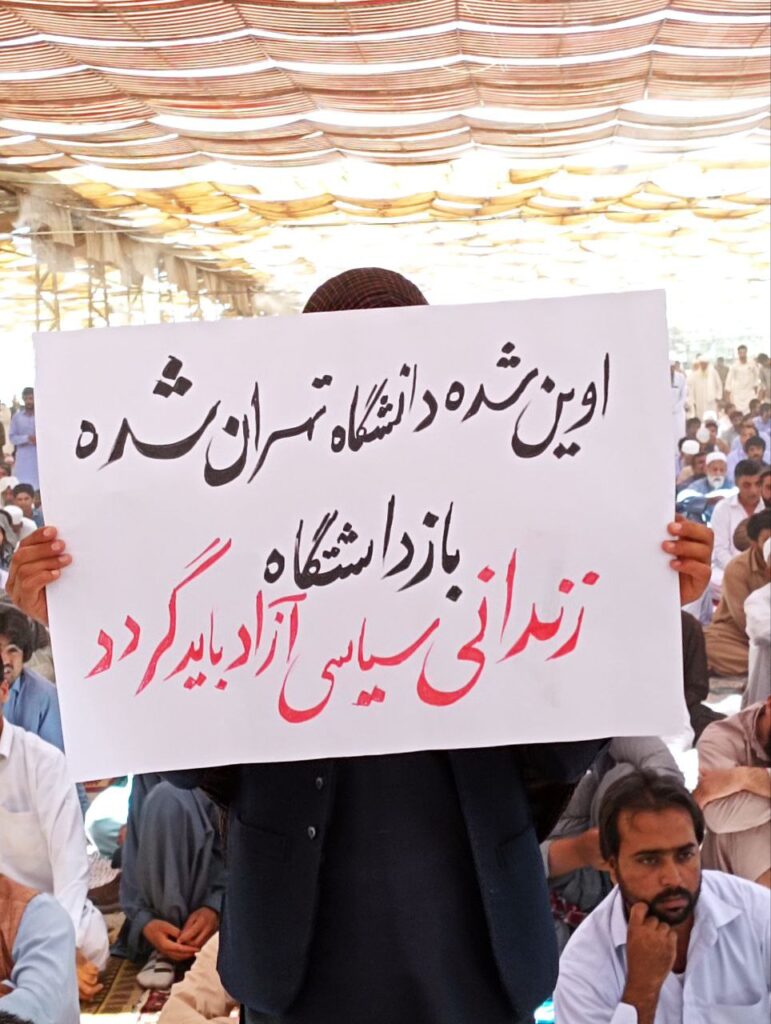 اوین شده دانشگاه تهران شده
بازداشتگاه
زندانی سیاسی آزاد باید گردد